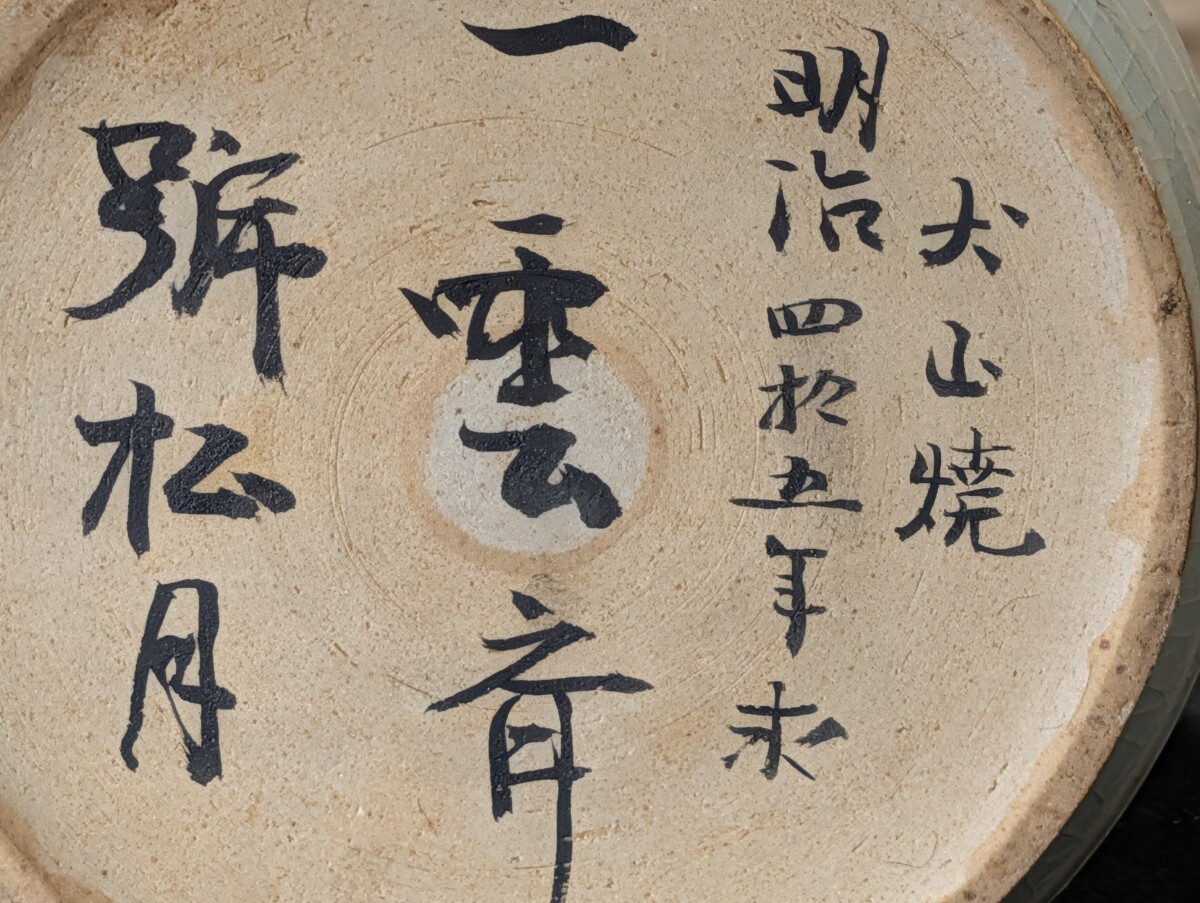 犬山焼
明治四拾五年求
一雲斉
號松月